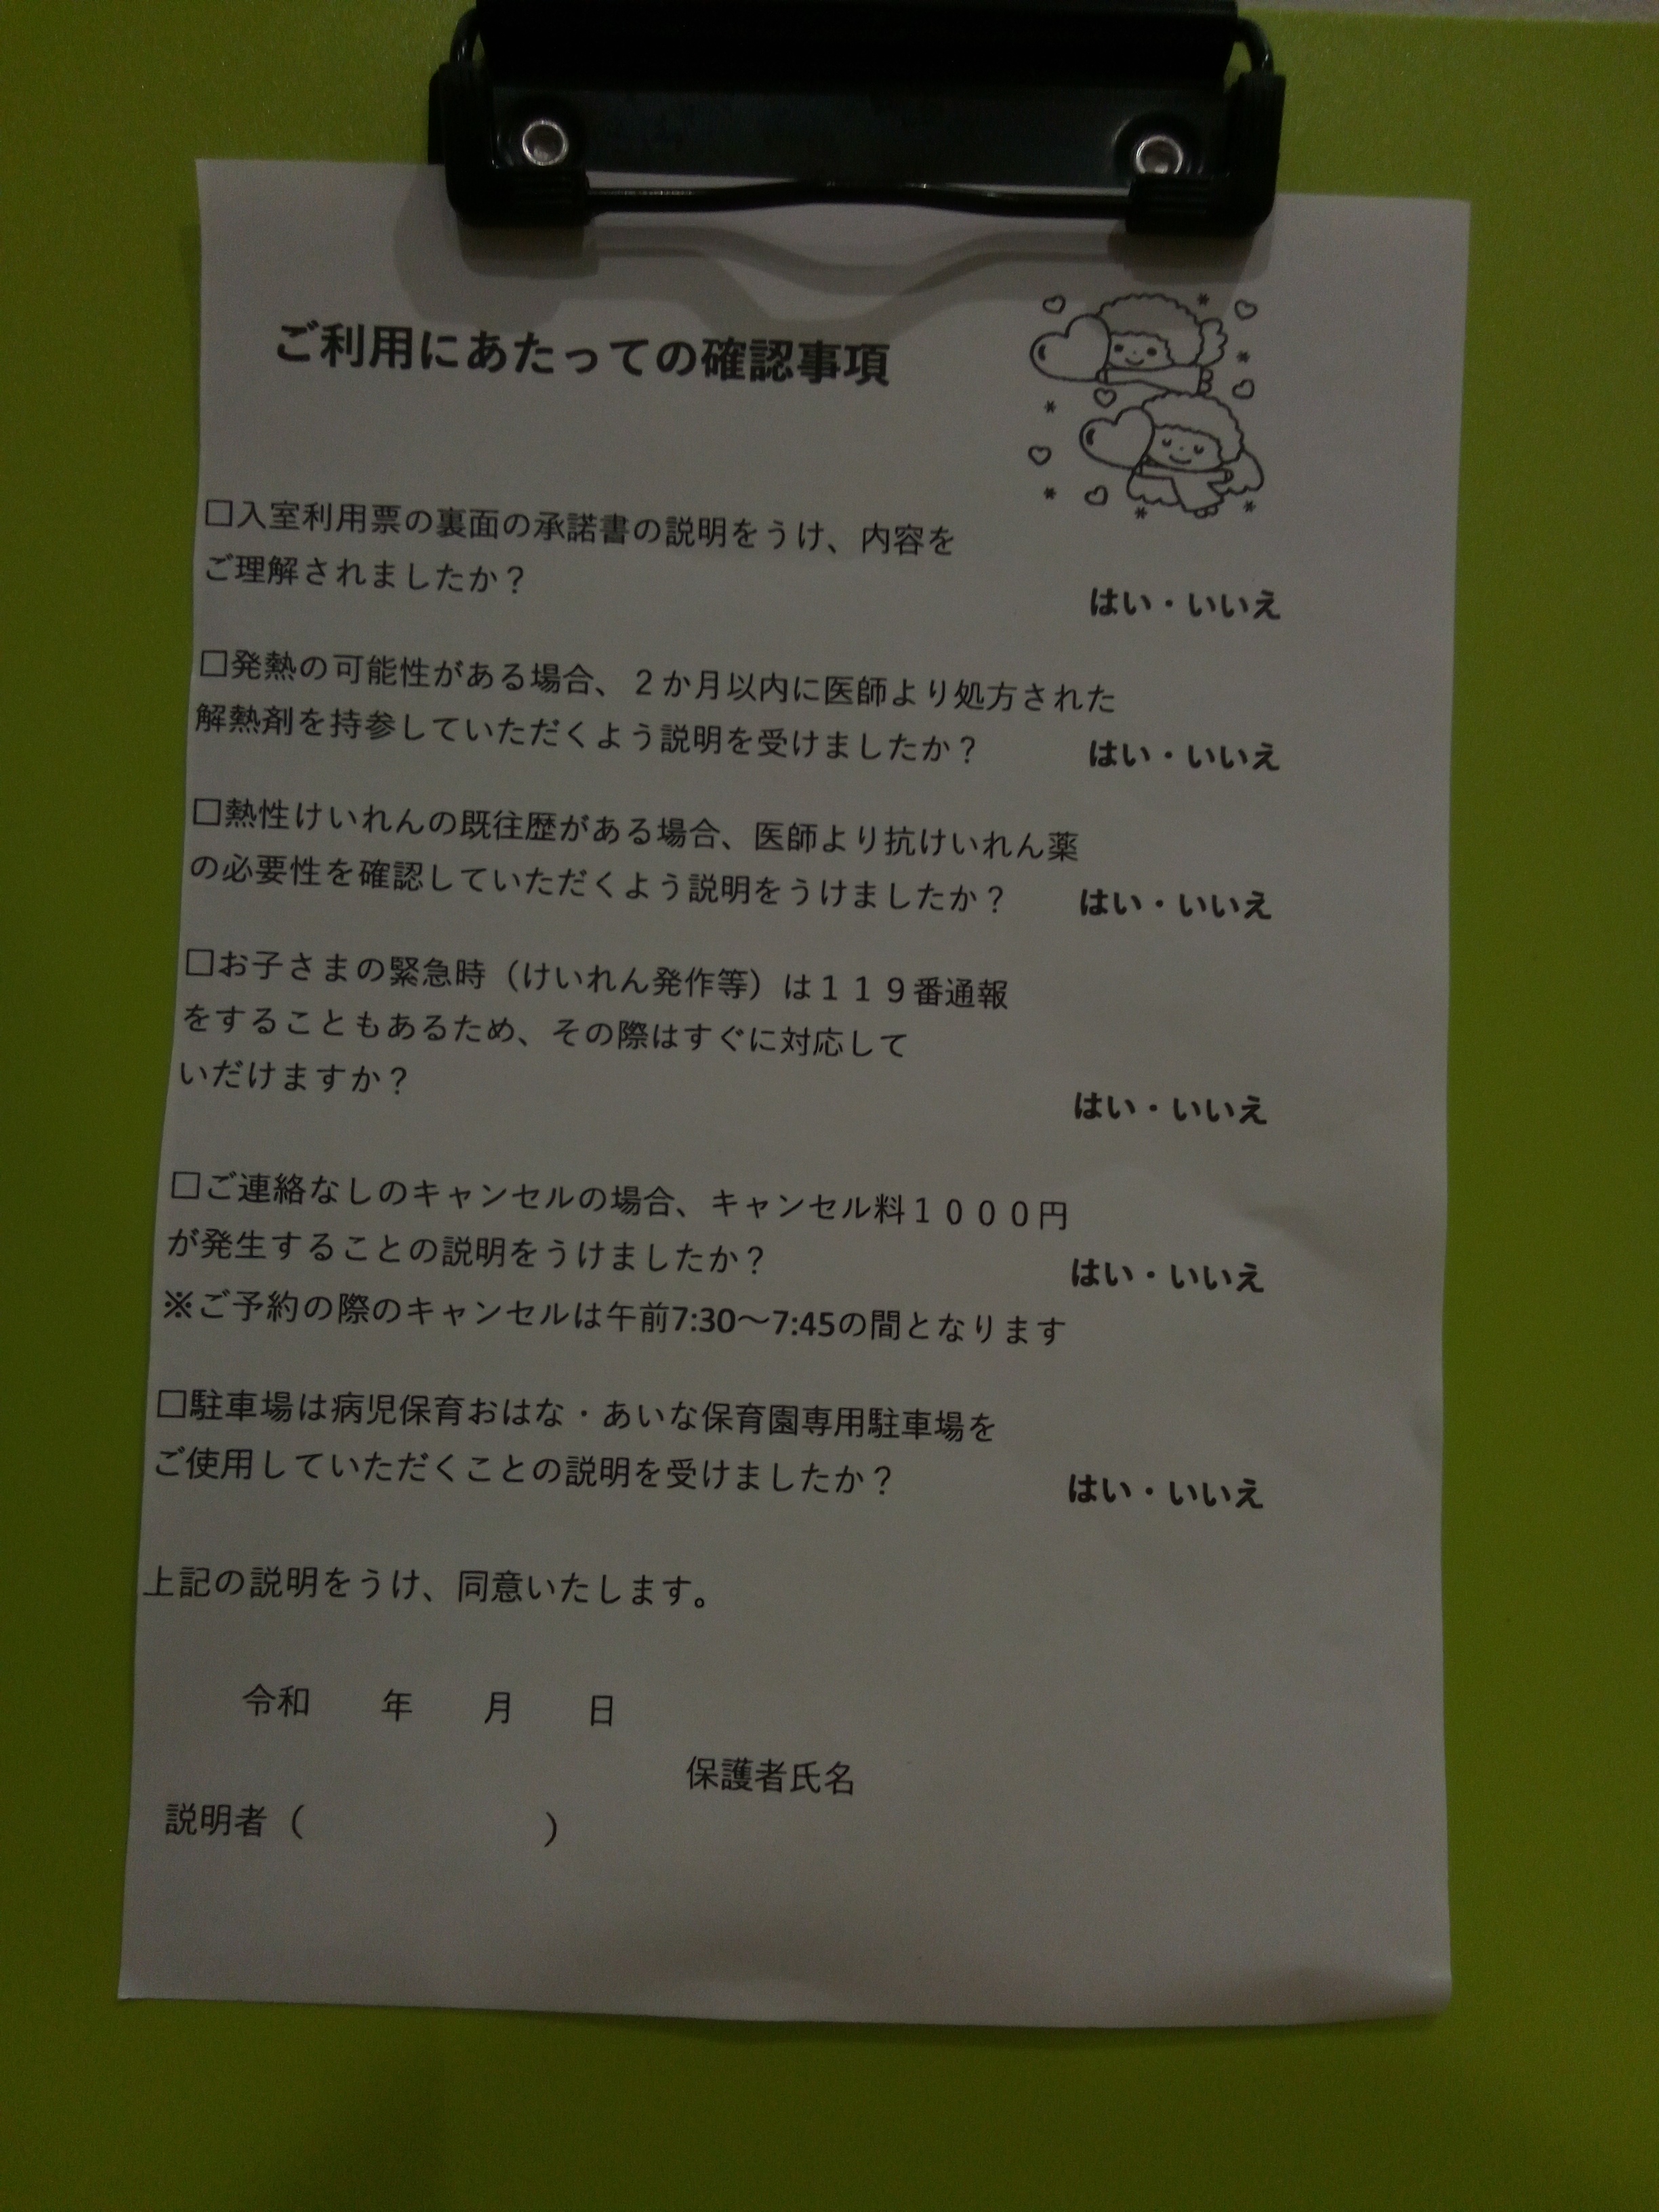 ご利用にあたっての確認事項
□入室利用票の裏面の承諾書の説明をうけ、内容を
ご理解されましたか？
はい・いいえ
□発熱の可能性がある場合、２か月以内に医師より処方された
解熱剤を持参していただくよう説明を受けましたか？ はい・いいえ
□熱性けいれんの既往歴がある場合、医師より抗けいれん薬
の必要性を確認していただくよう説明をうけましたか？ はい・いいえ
□お子さまの緊急時（けいれん発作等）は１１９番通報
をすることもあるため、その際はすぐに対応して
いだけますか？
はい・いいえ
□ご連絡なしのキャンセルの場合、キャンセル料１０００円
が発生することの説明をうけましたか？ はい・いいえ
※ご予約の際のキャンセルは午前7:30～7:45の間となります
□駐車場は病児保育おはな・あいな保育園専用駐車場を
ご使用していただくことの説明を受けましたか？ はい・いいえ
上記の説明をうけ、同意いたします。
令和　　年　　月　　日
保護者氏名
説明者（　　　　　　　）